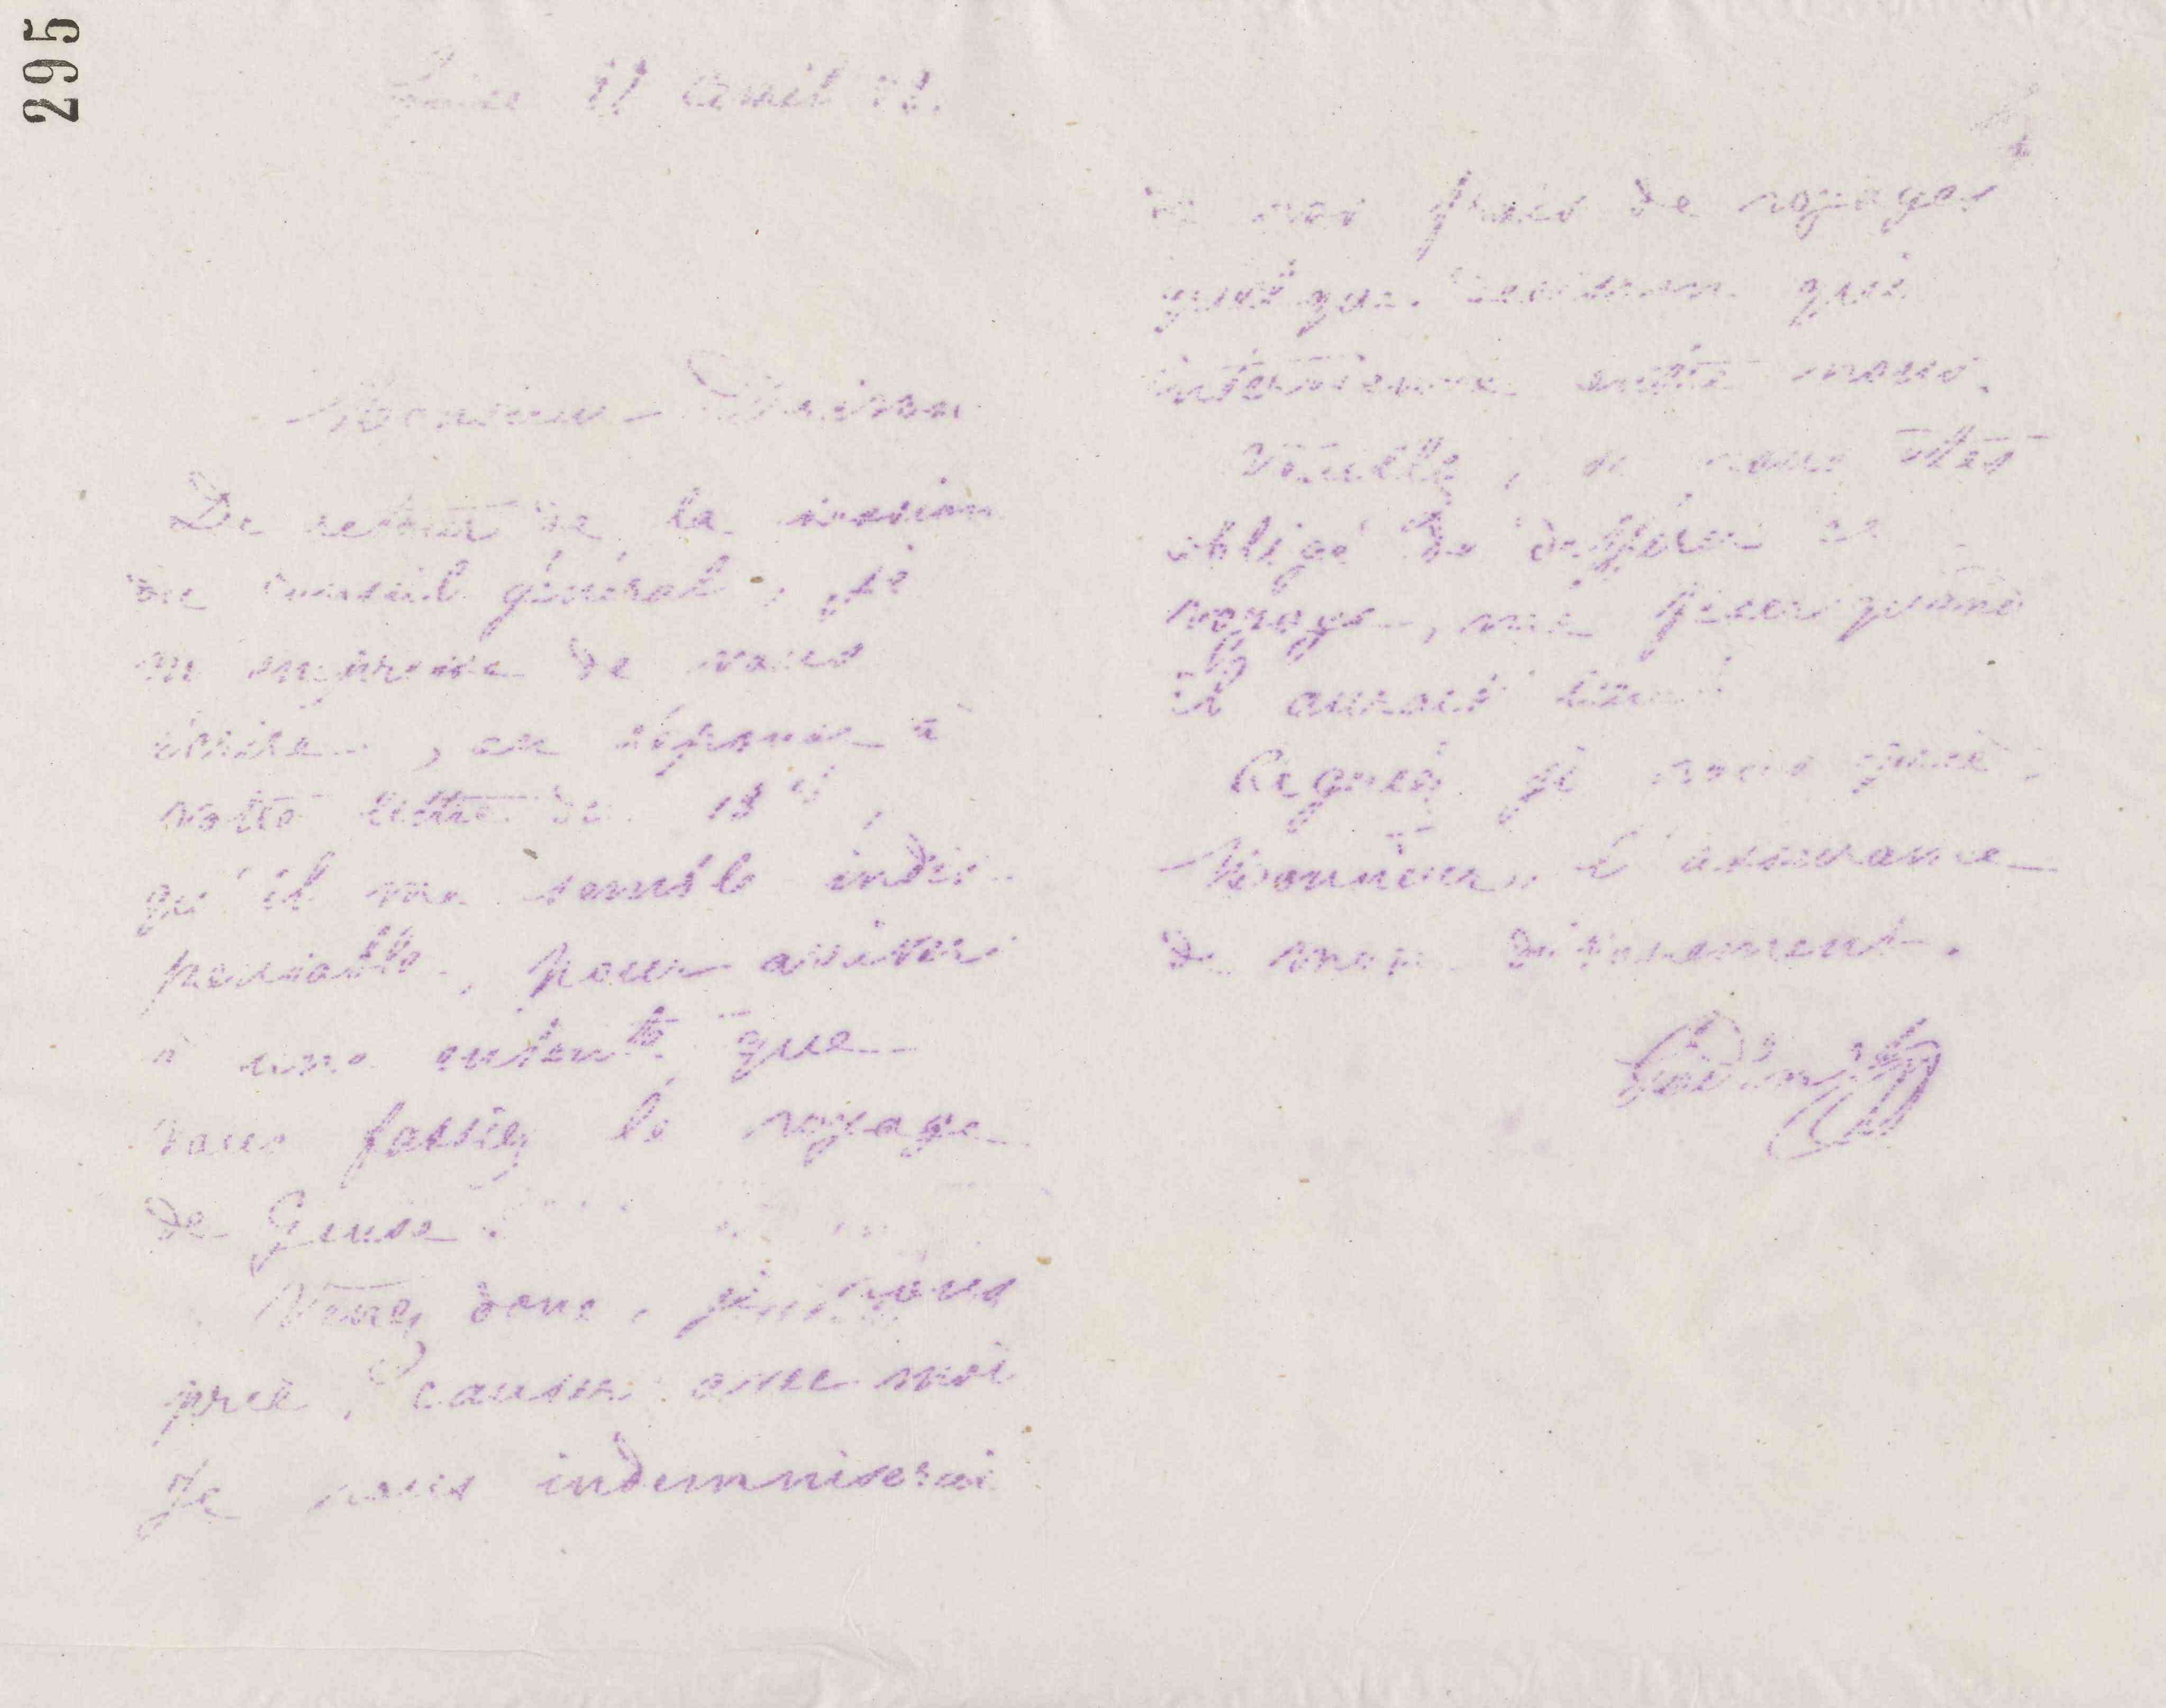 295
avril
Monsieur
De retour de la session
du Conseil général, je
m'empresse de vous
écrire, en réponse à
votre lettre du 13 ct,
qu'il me semble indis-
pensable, pour arriver
à une entente que
vous fassiez le voyage
de Guise.
Venez donc, je vous
prie, causer avec moi
Je vous indemniserai
de vos frais de voyages
quelque décision qui
intervienne entre nous.
Veuillez, si vous êtes
obligé de différer ce
voyage, me fixer quand
il aurait lieu.
Agréez je vous prie,
Monsieur, l'assurance
de mon dévouement.
Godin